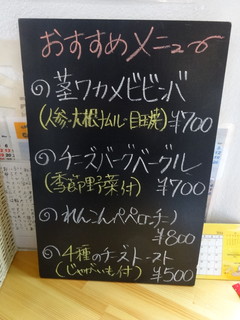 おすすめメニュー
茎ワカメビビンバ
(人参・大根ナムル・目玉焼) ¥700
チーズバーグベーグル
(季節野菜付) ¥700
れんこんペペロンチーノ
¥800
4種のチーズトースト
(じゃがいも付) ¥500